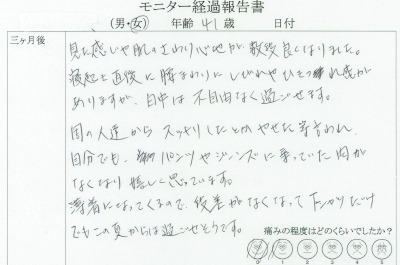 モニター経過報告書
(男・女) 年齢 41 歳 日付
三ヶ月後
見た感じや肌のさわり心地が、数段良くなりました。
寝起き直後に腰まわりにしびれやひきつれ感が
ありますが、日中は不自由なく過ごせます。
周りの人達から スッキリしたとかやせた等言われ、
自分でも、パンツやジーンズに乗っていた肉が
なくなり嬉しく思っています。
薄着になってくるので、段差がなくなってTシャツだけ
でもこの夏からは過ごせそうです。
痛みの程度はどのくらいでしたか?
0 1 2 3 4 5